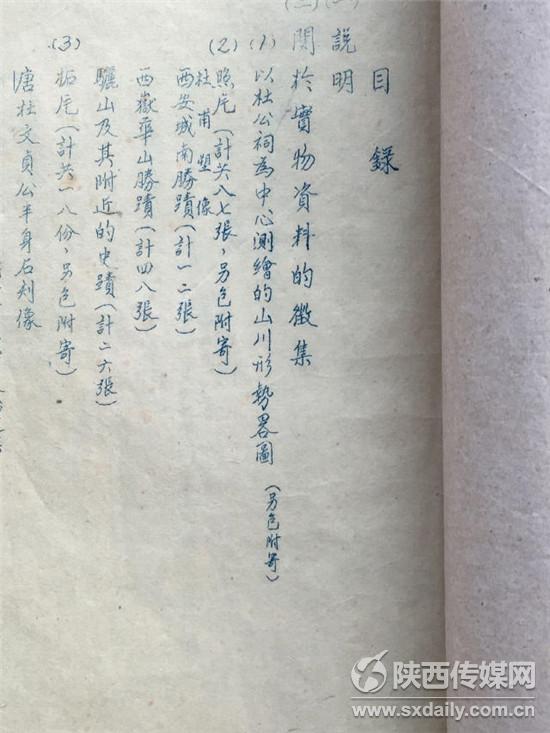 目錄
說明
關於實物資料的徵集
(1) 以杜公祠為中心測繪的山川形勢畧圖(另包附寄)
(2) 照片(計共八七張,另包附寄)
杜甫塑像
西安城南勝蹟(計一二張)
西嶽華山勝蹟(計四八張)
驪山及其附近的史蹟(計二六張)
(3) 拓片(計共一八份,另包附寄)
唐杜文貞公半身石刻像
陕西传媒网
www.sxdaily.com.cn